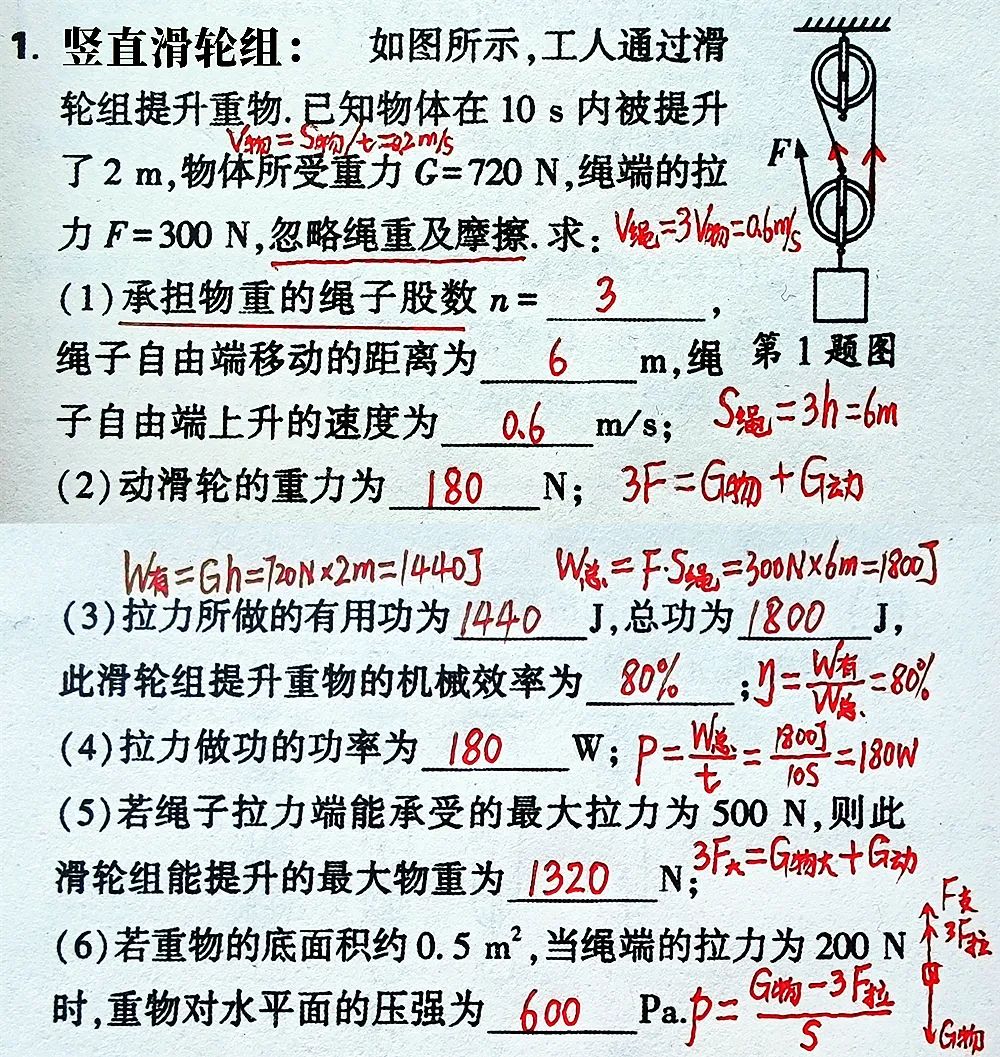 1. 竖直滑轮组： 如图所示,工人通过滑
轮组提升重物.已知物体在 10 s 内被提升
V物=S物/t=0.2m/s
了 2 m,物体所受重力 G=720 N,绳端的拉
F
力 F=300 N,忽略绳重及摩擦.求：
V绳=3V物=0.6m/s
(1)承担物重的绳子股数 n= 3 ,
绳子自由端移动的距离为 6 m,绳
第 1 题图
子自由端上升的速度为 0.6 m/s;
S绳=3h=6m
(2)动滑轮的重力为 180 N;
3F=G物+G动
W有=Gh=720N×2m=1440J
W总=F·S绳=300N×6m=1800J
(3)拉力所做的有用功为 1440 J,总功为 1800 J,
此滑轮组提升重物的机械效率为 80% ;
η=W有/W总=80%
(4)拉力做功的功率为 180 W;
P=W总/t=1800J/10S=180W
(5)若绳子拉力端能承受的最大拉力为 500 N,则此
滑轮组能提升的最大物重为 1320 N;
3F大=G物大+G动
(6)若重物的底面积约 0.5 m²,当绳端的拉力为 200 N
时,重物对水平面的压强为 600 Pa.
p=G物-3F拉/S
F支
3F拉
G物